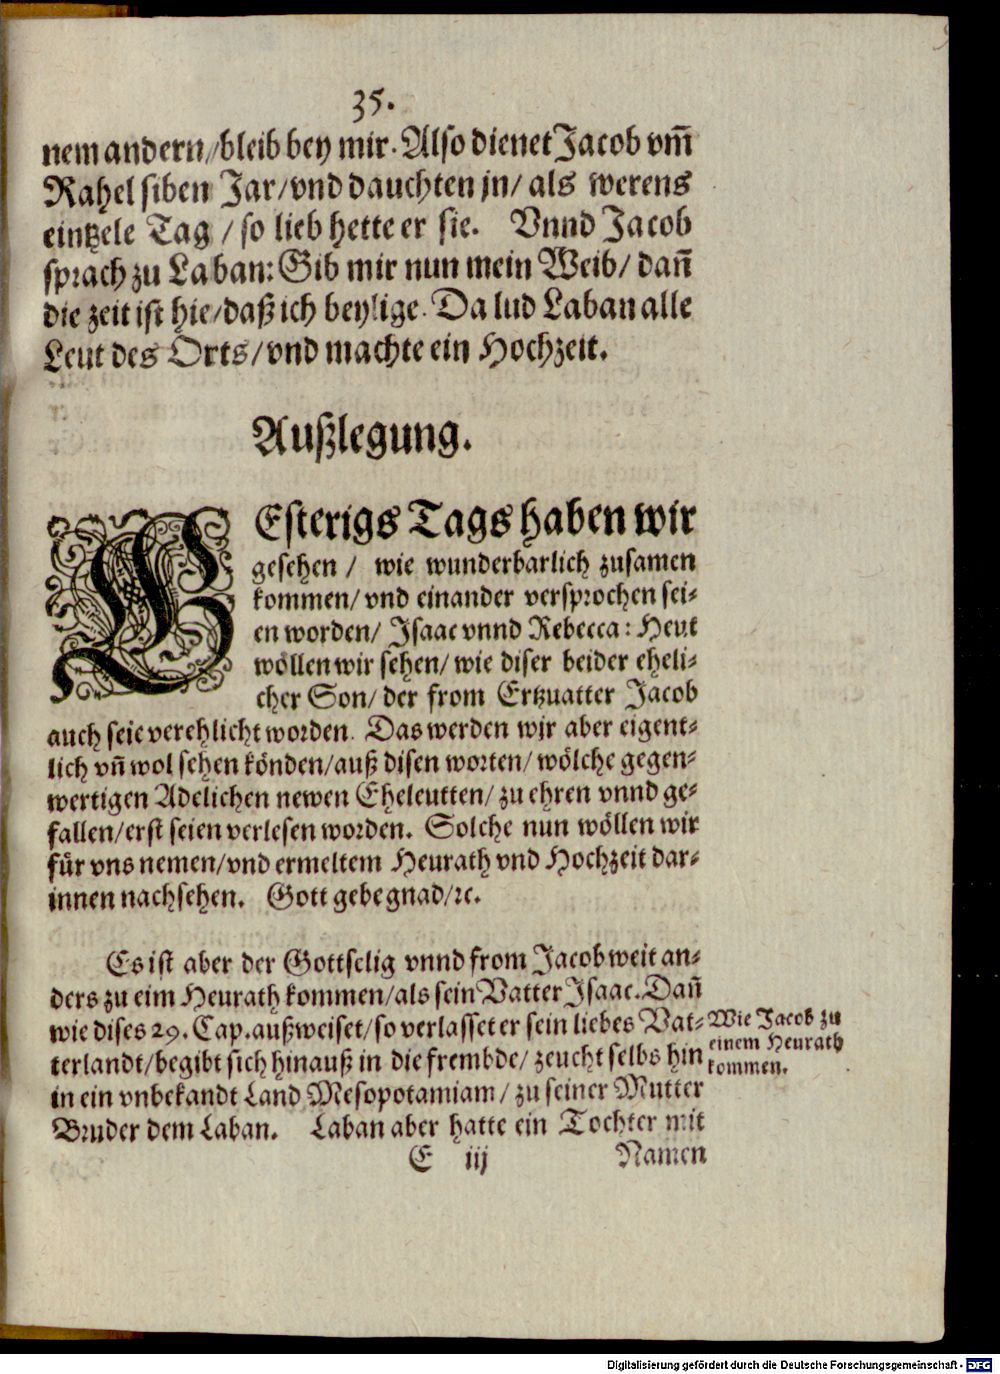 35.
nem andern / bleib bey mir. Also dienet Jacob vm̃
Rahel siben Jar / vnd dauchten jn / als werens
eintzele Tag / so lieb hette er sie. Vnnd Jacob
sprach zu Laban: Gib mir nun mein Weib / dañ
die zeit ist hie / daß ich beylige. Da lud Laban alle
Leut des Orts / vnd machte ein Hochzeit.
Außlegung.
GEsterigs Tags haben wir
gesehen / wie wunderbarlich zusamen
kommen / vnd einander versprochen sei-
en worden / Isaac vnnd Rebecca: Heut
wöllen wir sehen / wie diser beider eheli-
cher Son / der from Ertzuatter Jacob
auch seie verehlicht worden. Das werden wir aber eigent-
lich vñ wol sehen könden / auß disen worten / wölche gegen-
wertigen Adelichen newen Eheleutten / zu ehren vnnd ge-
fallen / erst seien verlesen worden. Solche nun wöllen wir
für vns nemen / vnd ermeltem Heurath vnd Hochzeit dar-
innen nachsehen. Gott gebe gnad / ꝛc.
Es ist aber der Gottselig vnnd from Jacob weit an-
ders zu eim Heurath kommen / als sein Vatter Isaac. Dañ
wie dises 29. Cap. außweiset / so verlasset er sein liebes Vat-
terlandt / begibt sich hinauß in die frembde / zeucht selbs hin
in ein vnbekandt Land Mesopotamiam / zu seiner Mutter
Bruder dem Laban. Laban aber hatte ein Tochter mit
Wie Jacob zu
einem Heurath
kommen.
E iij Namen
Digitalisierung gefördert durch die Deutsche Forschungsgemeinschaft - DFG